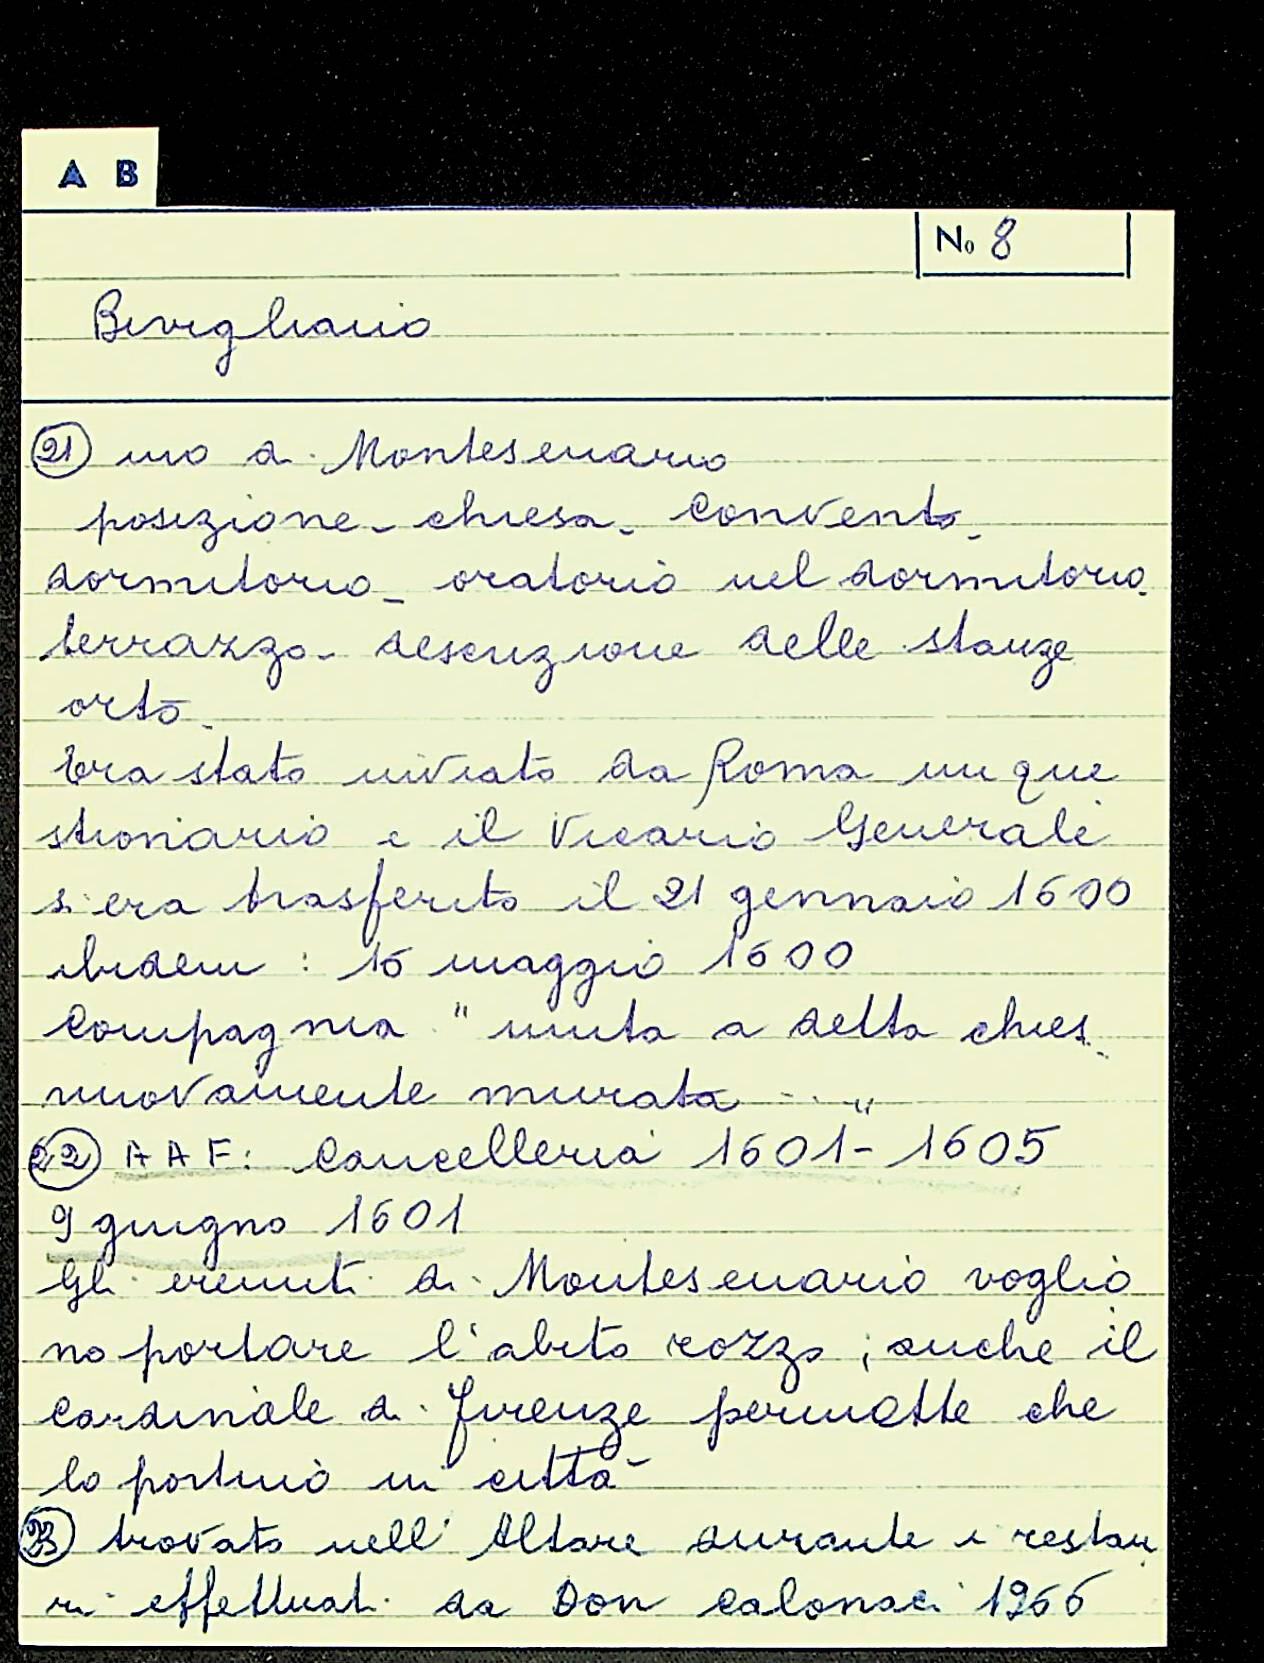 A B
No 8
Bivigliano
21 mo di Montesenario
posizione - chiesa - convento -
dormitorio - oratorio nel dormitorio -
terrazzo - descrizione delle stanze
orto -
Era stato inviato da Roma un que
stionario e il Vicario Generale
si era trasferito il 21 gennaio 1600
ibidem : 16 maggio 1600
Compagnia " unita a detta chies.
nuovamente murata ... "
22 A A F: Cancelleria 1601 - 1605
9 giugno 1601
Gli eremiti di Montesenario voglio
no portare l'abito rozzo ; anche il
Cardinale di Firenze permette che
lo portino in città
23 trovato nell' Altare durante i restau
ri effettuati da Don Calonaci 1966